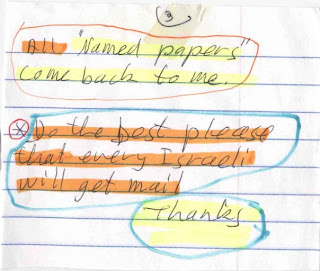 3
All "Named papers"
Come back to me.
* Do the best please
that every Israeli
will get mail
Thanks